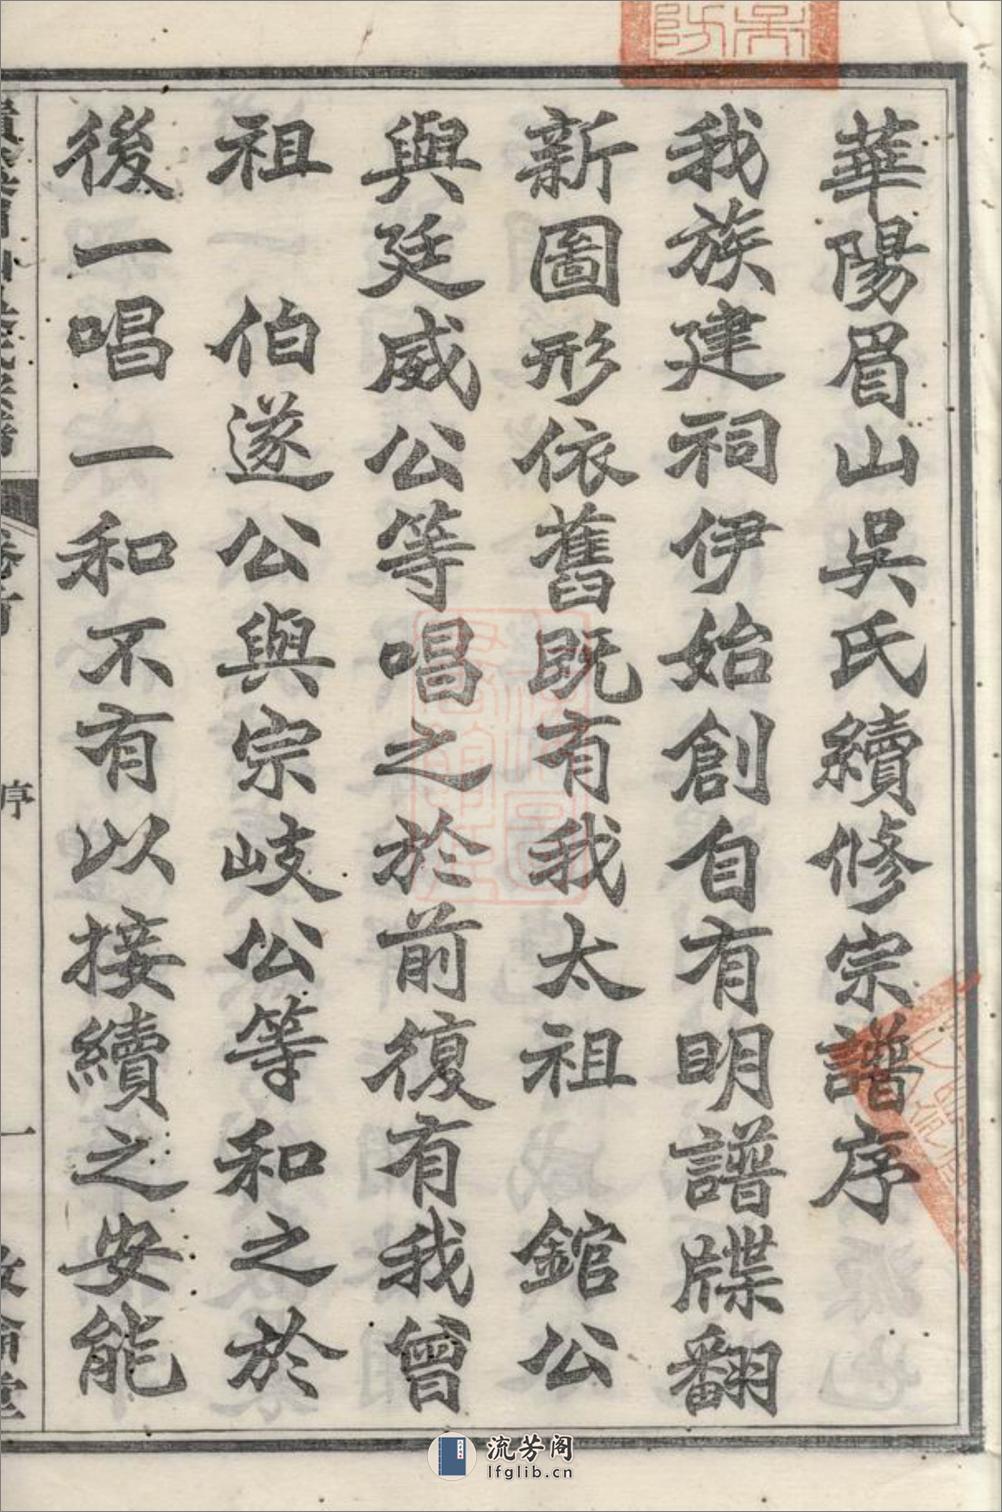 華陽眉山吳氏續修宗譜序
我族建祠伊始創自有明譜牒翻
新圖形依舊既有我太祖 錧公
與廷威公等唱之於前復有我曾
祖 伯遂公與宗岐公等和之於
後一唱一和不有以接續之安能
序
一
流芳阁
lfglib.cn